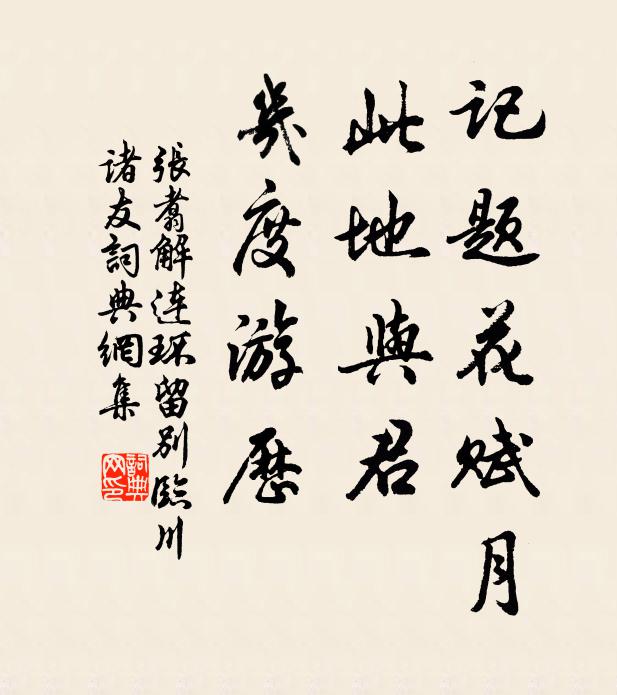 記題花賦月
此地與君
幾度游歷
張翥解連環留別臨川
諸友詞典網集
詞典網印